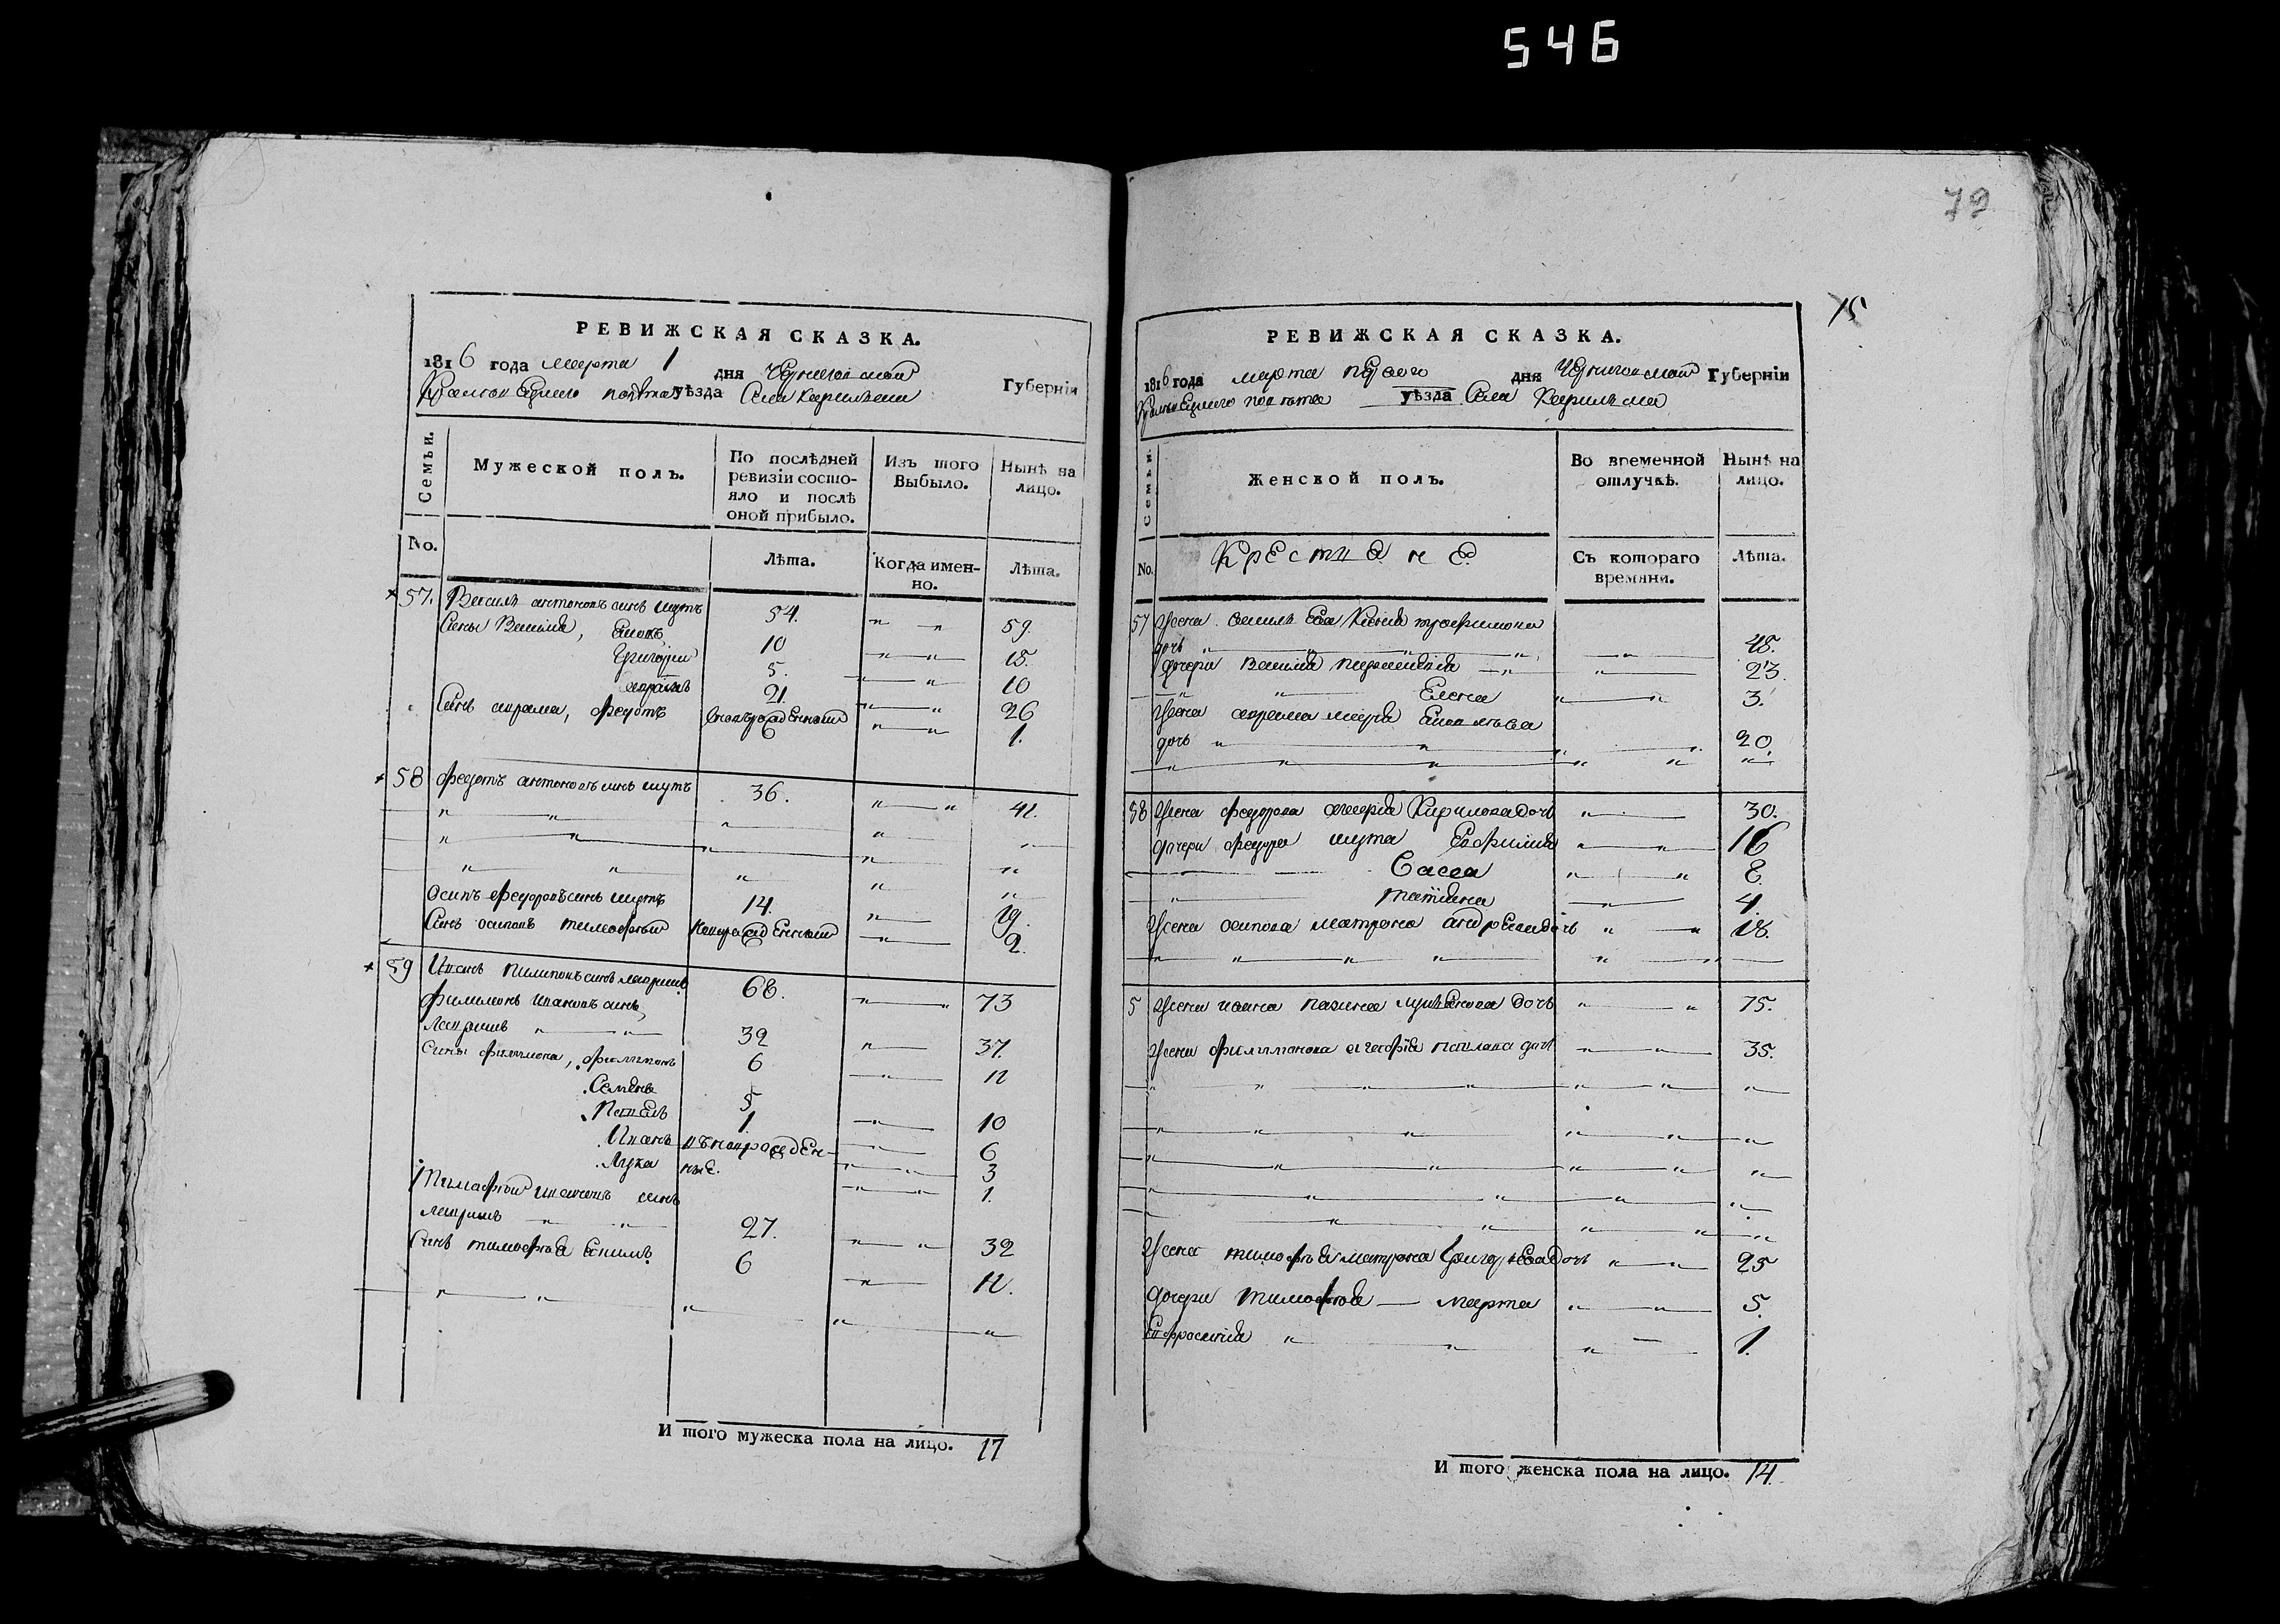 546
79
РЕВИЖСКАЯ СКАЗКА.
1816 года марта 1 дня Черниговской Губернии
повѣта уѣзда Села
Семьи.
Мужеской полъ.
По послѣдней ревизіи состояло и послѣ оной прибыло.
Изъ того Выбыло.
Нынѣ на лицо.
No.
Лѣта.
Когда именно.
Лѣта.
57. Василь антоновъ синъ шутъ 54. 59.
Сины Василя, 10 15.
Григорій 5. 10
21. 26
Синъ аврама, федотъ новорожденный 1.
58 федотъ антоновъ синъ шутъ 36. 41.
Осипъ федоровъ синъ шутъ 14. 19.
Синъ осиповъ тимофѣй новорожденный 2.
59 Иванъ пилиповъ синъ 68. 73
филимонъ ивановъ синъ,
32 37.
Сины филимона, филимонъ 6 11
Семенъ 5 10
Павелъ 1. 6
Иванъ новорожден- 3
Лука ные. 1.
Тимофѣй ивановъ синъ
27. 32
Синъ тимофѣя 6 11.
И того мужеска пола на лицо. 17
15
РЕВИЖСКАЯ СКАЗКА.
1816 года марта первого дня Черниговской Губерніи
повѣта уѣзда Села
Семьи.
Женской полъ.
Во временной отлучкѣ.
Нынѣ на лицо.
No.
Крестяне
Съ котораго времяни.
Лѣта.
57 Жена трофимова
дочь 48.
дочери Василя 23.
Елена 3.
Жена аврама марія
дочь 20.
58 Жена федорова Кирилова дочь 30.
дочери федора шута Евфимия 16
8.
татіана 4.
Жена осипова матрона андреева дочь 18.
5 Жена ивана дочь 75.
Жена филимонова агафія павлова дочь 35.
Жена тимофѣя матрона Григорѣева дочь 25
дочери тимофѣя марта 5.
Евфросинія 1.
И того женска пола на лицо. 14.